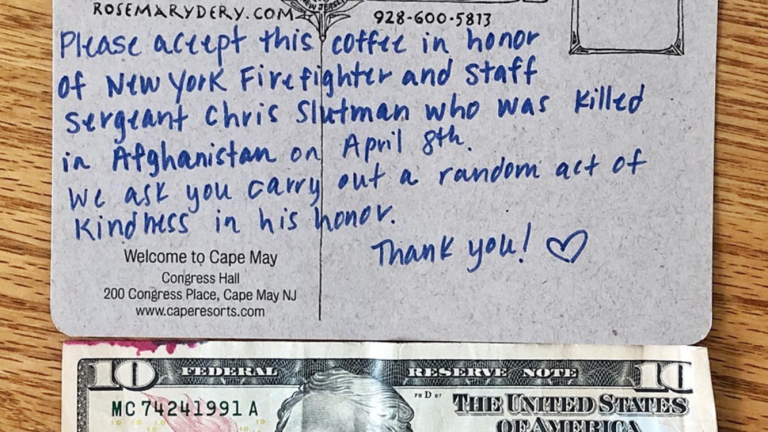 ROSEMARYDERY.COM
928-600-5813
Please accept this coffee in honor
of New York Firefighter and Staff
Sergeant Chris Slutman who was killed
in Afghanistan on April 8th.
We ask you carry out a random act of
kindness in his honor.
Thank you! ♡
Welcome to Cape May
Congress Hall
200 Congress Place, Cape May NJ
www.caperesorts.com
10 FEDERAL RESERVE NOTE 10
MC 74241991 A
THE UNITED STATES
OF AMERICA